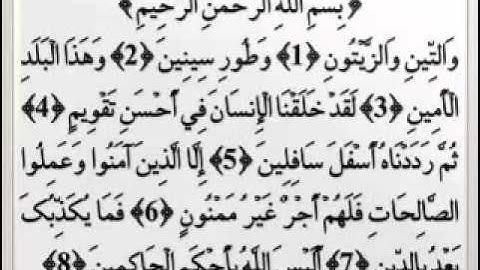 ﴿بِسْمِ اللَّهِ الرَّحْمَنِ الرَّحِيمِ﴾
وَالتِّينِ وَالزَّيْتُونِ ﴿1﴾ وَطُورِ سِينِينَ ﴿2﴾ وَهَذَا الْبَلَدِ
الْأَمِينِ ﴿3﴾ لَقَدْ خَلَقْنَا الْإِنسَانَ فِي أَحْسَنِ تَقْوِيمٍ ﴿4﴾
ثُمَّ رَدَدْنَاهُ أَسْفَلَ سَافِلِينَ ﴿5﴾ إِلَّا الَّذِينَ آمَنُوا وَعَمِلُوا
الصَّالِحَاتِ فَلَهُمْ أَجْرٌ غَيْرُ مَمْنُونٍ ﴿6﴾ فَمَا يُكَذِّبُكَ
بَعْدُ بِالدِّينِ ﴿7﴾ أَلَيْسَ اللَّهُ بِأَحْكَمِ الْحَاكِمِينَ ﴿8﴾